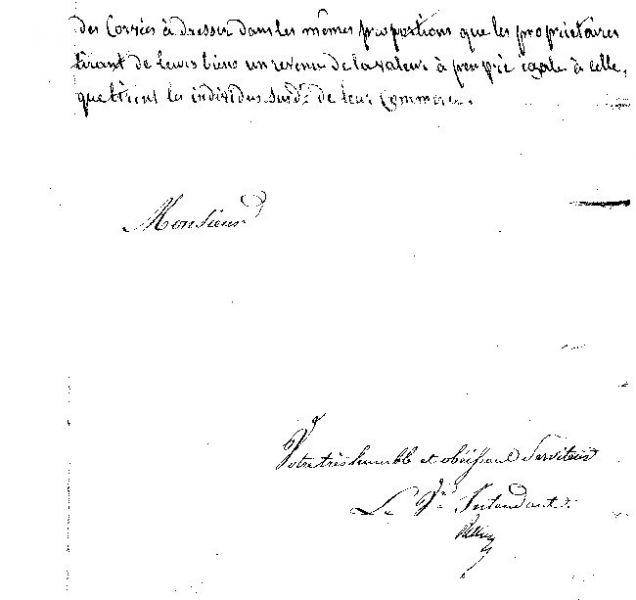 des Corvées à dresser dans les mêmes proportions que les propriétaires
tirant de leurs biens un revenu de la valeur à peu près egale à celle,
que tirent les individus susd.ts de leur Commerce.
Monsieur
Votre très humble et obéissant Serviteur
Le Intendant